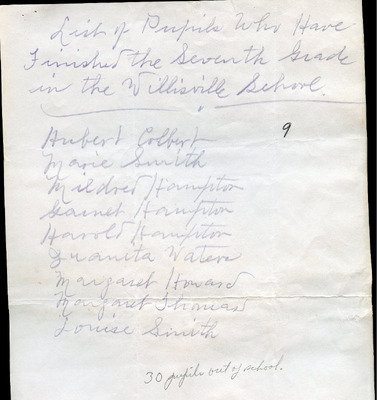 List of Pupils Who Have
Finished the Seventh Grade
in the Willisville School.
9
Hubert Colbert
Marie Smith
Mildred Hampton
Garnet Hampton
Harold Hampton
Juanita Waters
Margaret Howard
Margaret Thomas
Louise Smith
30 pupils out of school.